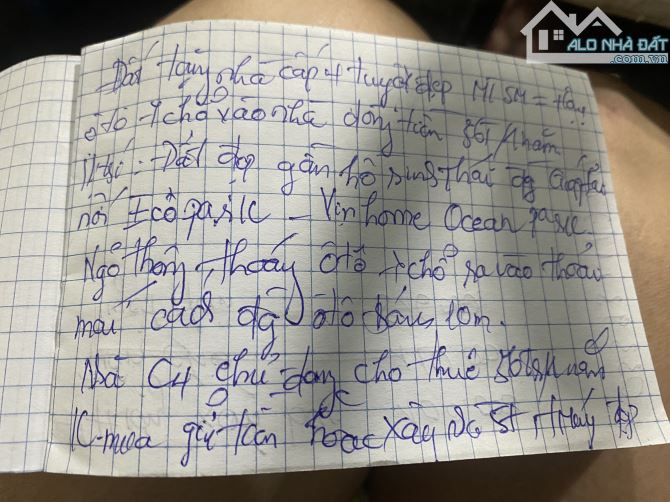 ALO NHÀ ĐẤT
.com.vn
Đất tặng nhà cấp 4 tuyệt đẹp MT 5M =
ôtô 7 chỗ vào nhà dòng tiền 36T/Năm
Vị trí: Đất đẹp gần hồ sinh thái
nối Ecopark - Vinhome Ocean park.
Ngõ thông, thoáng ôtô 7 chỗ ra vào thoải
mái cách ôtô tránh 10m.
Nhà C4 chủ đang cho thuê 36tr/năm
K mua giữ tiền hoặc xây đẹp